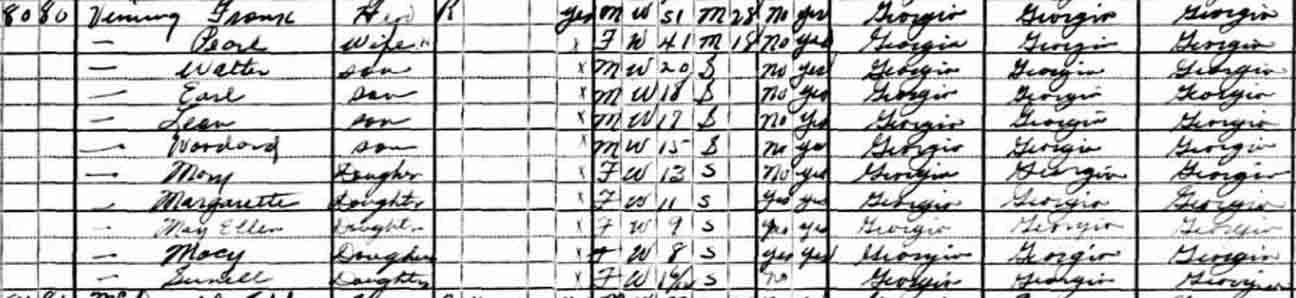 80 80 Vining Frank Head R yes M W 51 M 28 No yes Georgia Georgia Georgia
— Pearl Wife x F W 41 M 18 No yes Georgia Georgia Georgia
— Walter son x M W 20 S No yes Georgia Georgia Georgia
— Earl son x M W 18 S No yes Georgia Georgia Georgia
— Leon son x M W 17 S No yes Georgia Georgia Georgia
— Woodard son x M W 15 S No yes Georgia Georgia Georgia
— Mary Daughter x F W 13 S No yes Georgia Georgia Georgia
— Margarette Daughter x F W 11 S yes yes Georgia Georgia Georgia
— May Ellen Daughter x F W 9 S yes yes Georgia Georgia Georgia
— Macy Daughter x F W 8 S yes yes Georgia Georgia Georgia
— Daughter x F W S no Georgia Georgia Georgia